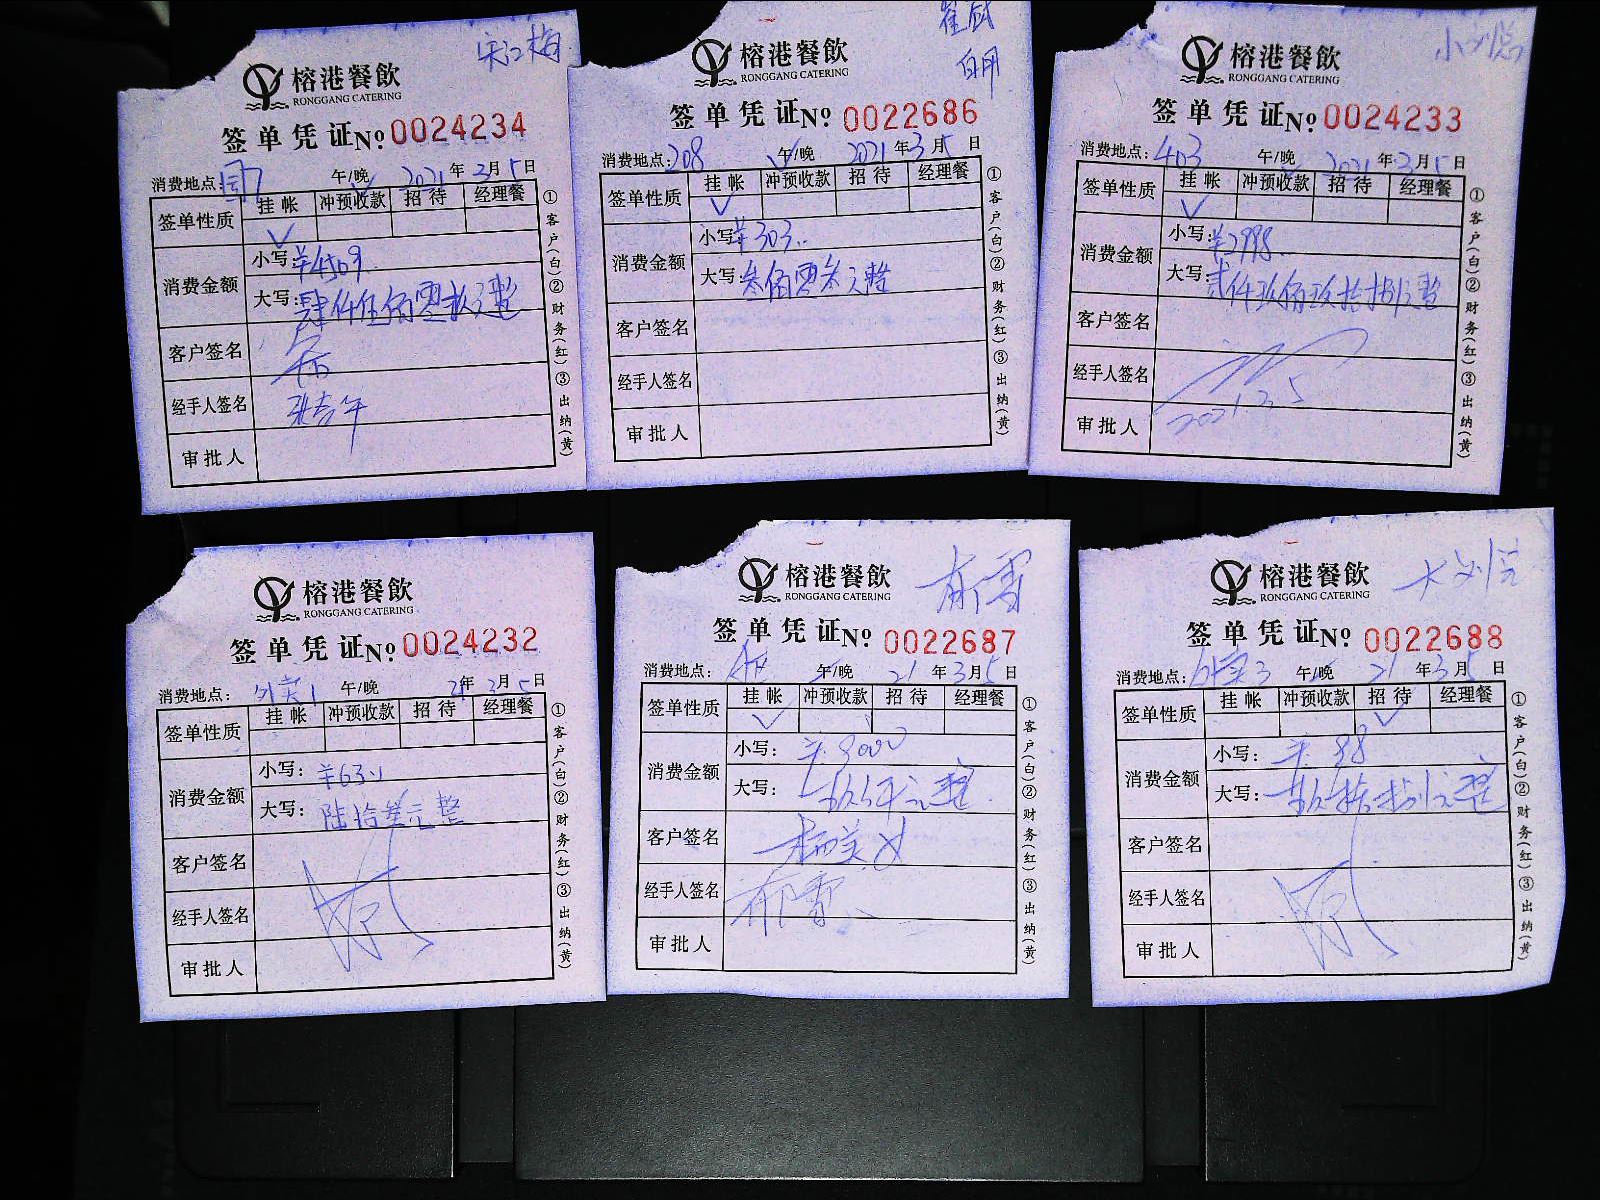 宋江梅
榕港餐飲
RONGGANG CATERING
签单凭证№0024234
消费地点: 午/晚 2021年3月5日
签单性质 挂帐 冲预收款 招待 经理餐
消费金额 小写:¥4509
大写:肆仟伍佰零玖元整
客户签名
经手人签名
审批人
①客户(白)②财务(红)③出纳(黄)
榕港餐飲
RONGGANG CATERING
签单凭证№0022686
消费地点:208 午/晚 2021年3月5日
签单性质 挂帐 冲预收款 招待 经理餐
消费金额 小写:¥303
大写:叁佰零叁元整
客户签名
经手人签名
审批人
①客户(白)②财务(红)③出纳(黄)
小刘总
榕港餐飲
RONGGANG CATERING
签单凭证№0024233
消费地点:403 午/晚 2021年3月5日
签单性质 挂帐 冲预收款 招待 经理餐
消费金额 小写:¥2998
大写:贰仟玖佰玖拾捌元整
客户签名
经手人签名
2021.3.5
审批人
①客户(白)②财务(红)③出纳(黄)
榕港餐飲
RONGGANG CATERING
签单凭证№0024232
消费地点:外卖1 午/晚 21年3月5日
签单性质 挂帐 冲预收款 招待 经理餐
消费金额 小写:¥63
大写:陆拾叁元整
客户签名
经手人签名
审批人
①客户(白)②财务(红)③出纳(黄)
榕港餐飲
RONGGANG CATERING
签单凭证№0022687
消费地点: 午/晚 21年3月5日
签单性质 挂帐 冲预收款 招待 经理餐
消费金额 小写:¥9000
大写:玖仟元整
客户签名
经手人签名 郝雪
审批人
①客户(白)②财务(红)③出纳(黄)
大刘总
榕港餐飲
RONGGANG CATERING
签单凭证№0022688
消费地点:外卖3 午/晚 21年3月5日
签单性质 挂帐 冲预收款 招待 经理餐
消费金额 小写:¥98
大写:玖拾捌元整
客户签名
经手人签名
审批人
①客户(白)②财务(红)③出纳(黄)